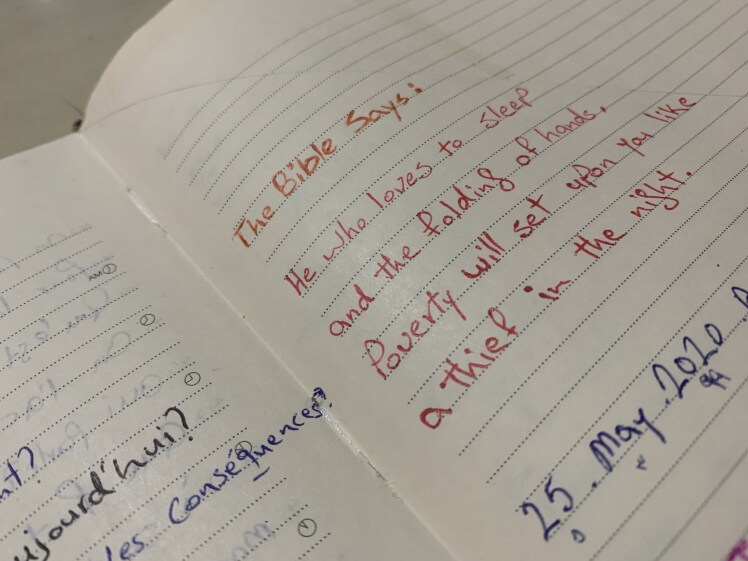 ujourd'hui?
les conséquences?
The Bible Says:
He who loves to sleep
and the folding of hands,
Poverty will set upon you like
a thief in the night.
25. May. 2020